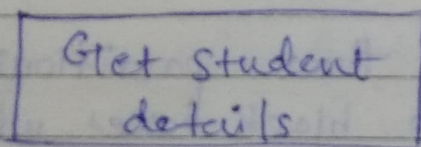 Get student
details